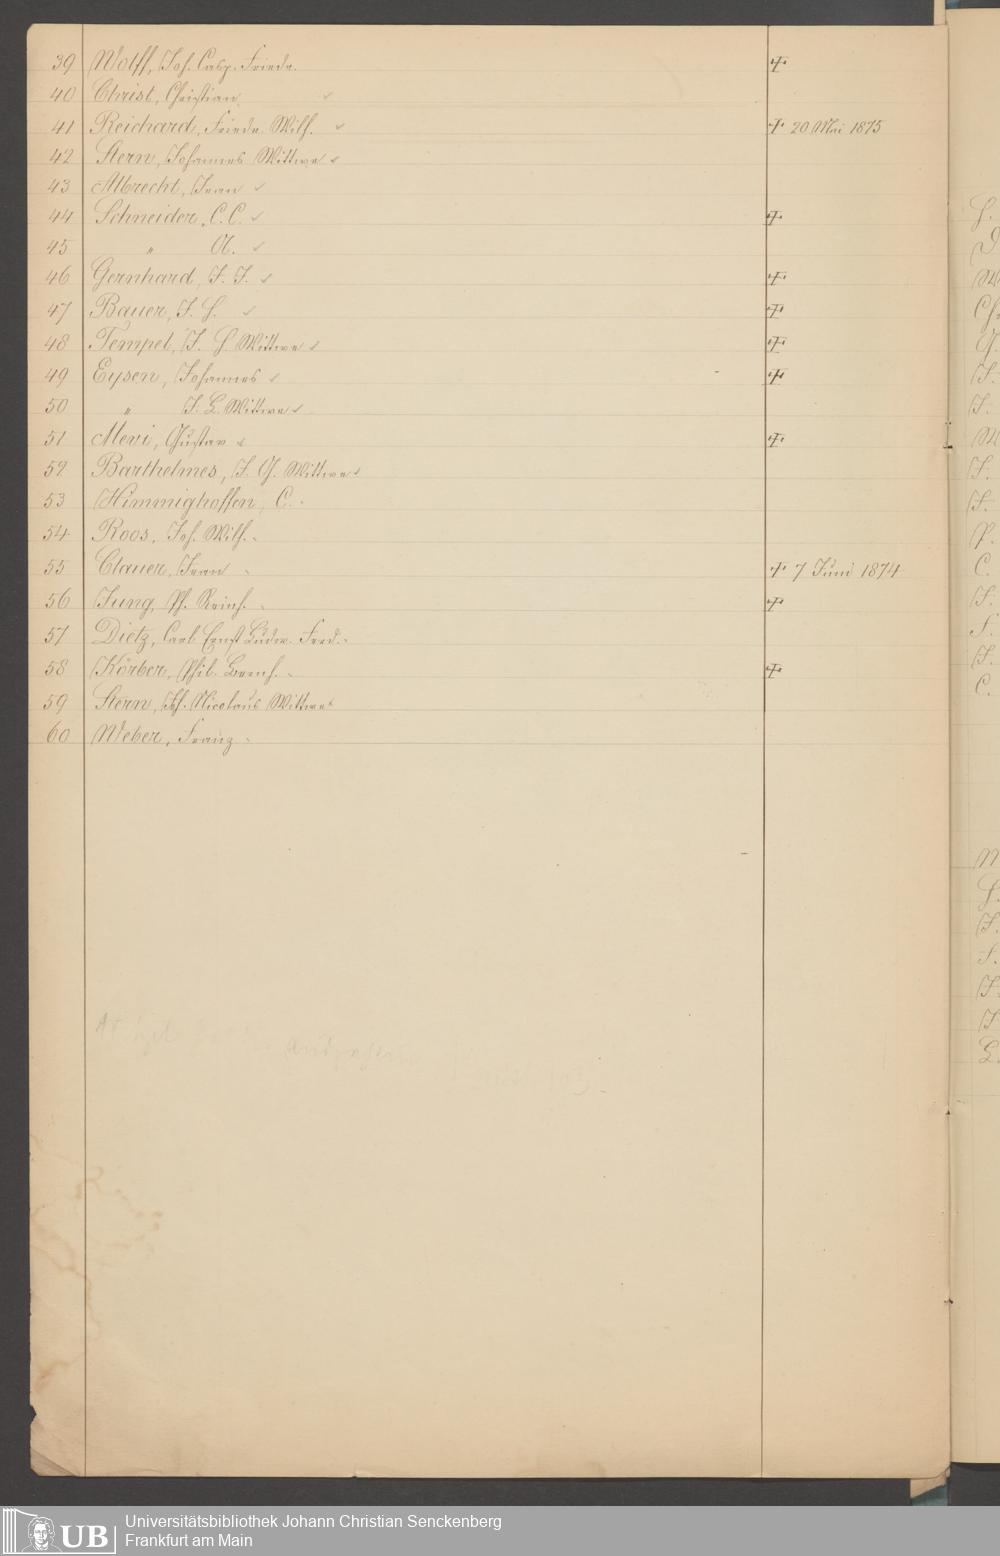 39 Wolff, Joh. Casp. Friedr. †
40 Christ, Christian
41 Reichard, Friedr. Wilh. † 20 Mai 1875
42 Stern, Johannes Wittwe
43 Albrecht, Jean
44 Schneider, C. C. †
45 " A.
46 Gernhard, J. J. †
47 Bauer, J. H. †
48 Tempel, J. H. Wittwe †
49 Eysen, Johannes †
50 " J. L. Wittwe
51 Mevi, Gustav †
52 Barthelmes, J. G. Wittwe
53 Himmighoffen, C.
54 Roos, Joh. Wilh.
55 Clauer, Jean † 7 Juni 1874
56 Jung, Ph. Reinh. †
57 Dietz, Carl Ernst Ludw. Ferd.
58 Körber, Phil. Bernh. †
59 Stern, Joh. Nicolaus Wittwe
60 Weber, Franz
UB
Universitätsbibliothek Johann Christian Senckenberg
Frankfurt am Main